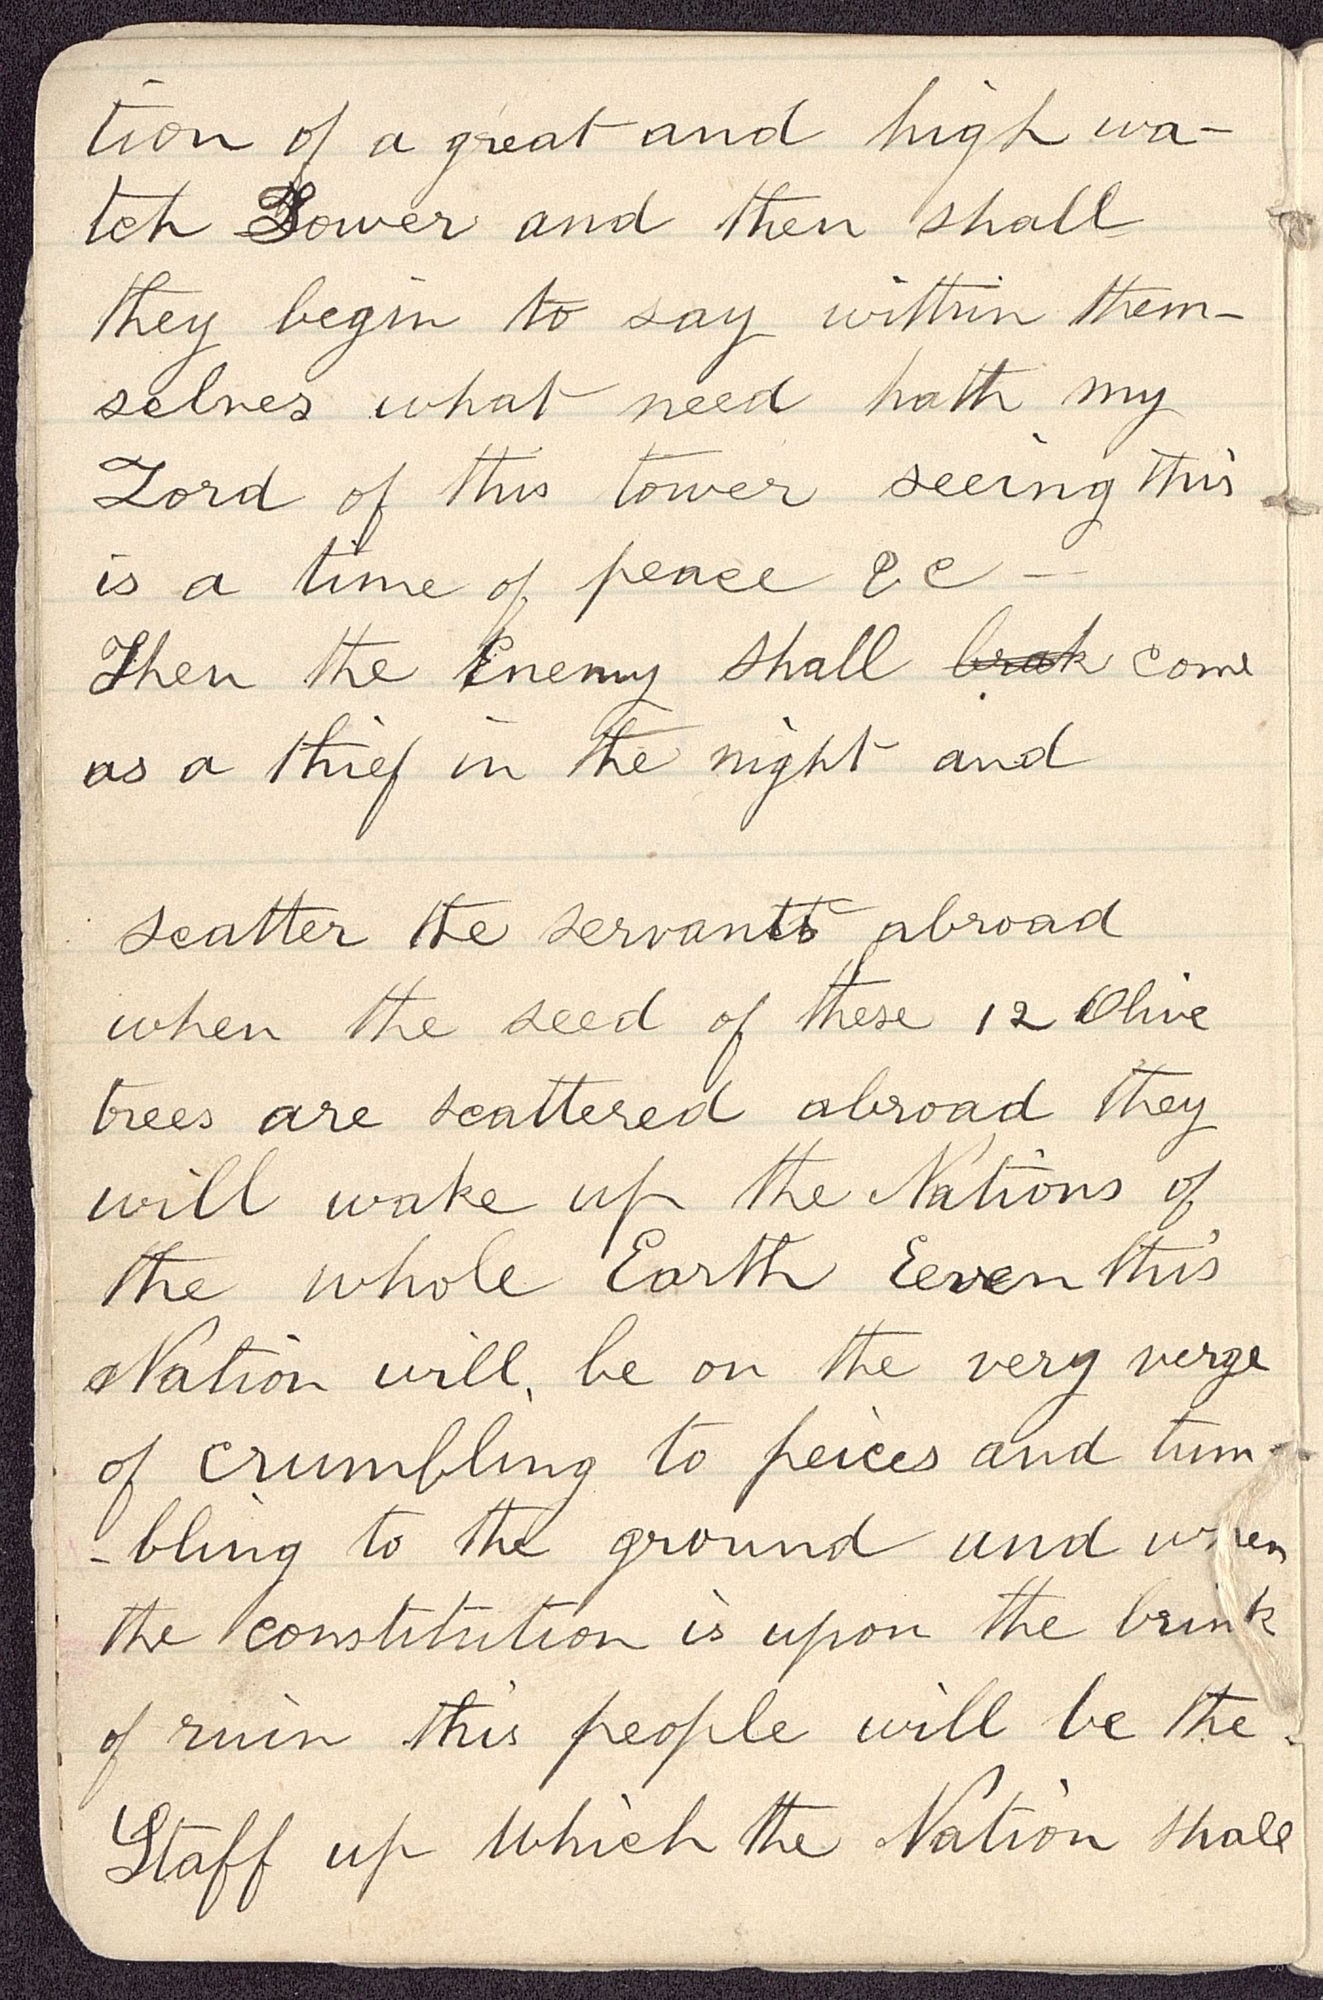 tion of a great and high wa-
tch Tower and then shall
they begin to say within them-
selves what need hath my
Lord of this tower seeing this
is a time of peace &c —
Then the Enemy shall brak come
as a thief in the night and
scatter the servants abroad
when the seed of these 12 Olive
trees are scattered abroad they
will wake up the Nations of
the whole Earth Eeven this
Nation will, be on the very verge
of crumbling to peices and tum-
-bling to the ground and when
the constitution is upon the brink
of ruin this people will be the
Staff up which the Nation shall